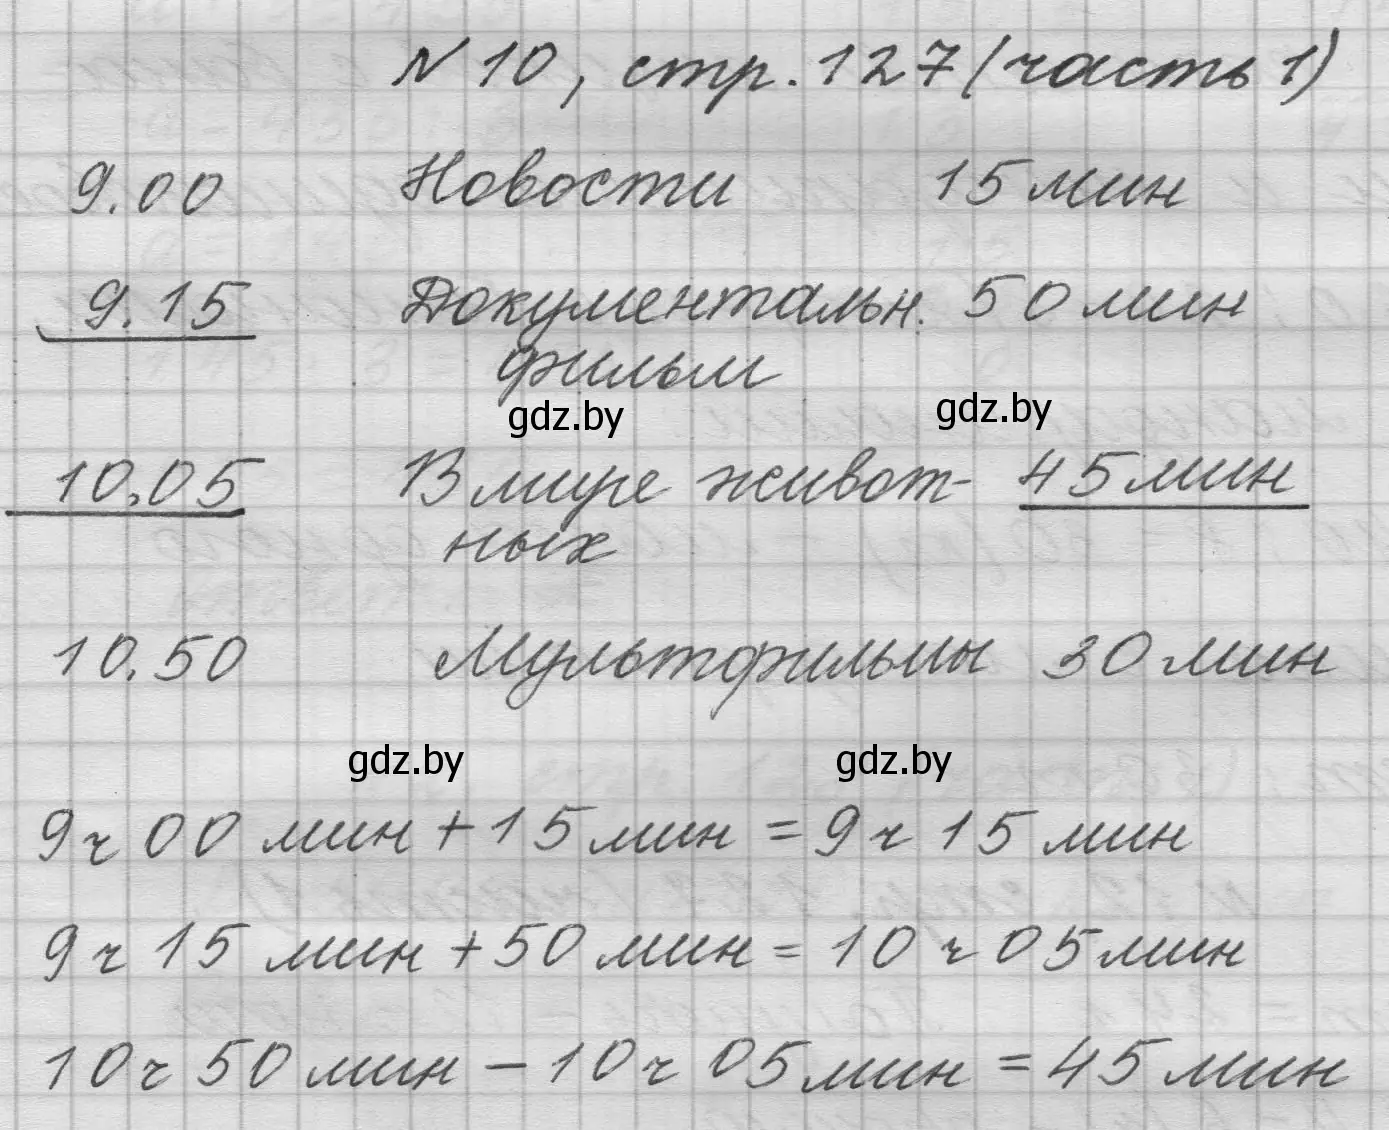 N 10, стр. 127 (часть 1)
9.00 Новости 15 мин
9.15 Документальн. 50 мин
фильм
gdz.by gdz.by
10.05 В мире живот- 45 мин
ных
10.50 Мультфильмы 30 мин
gdz.by gdz.by
9 ч 00 мин + 15 мин = 9 ч 15 мин
9 ч 15 мин + 50 мин = 10 ч 05 мин
10 ч 50 мин - 10 ч 05 мин = 45 мин